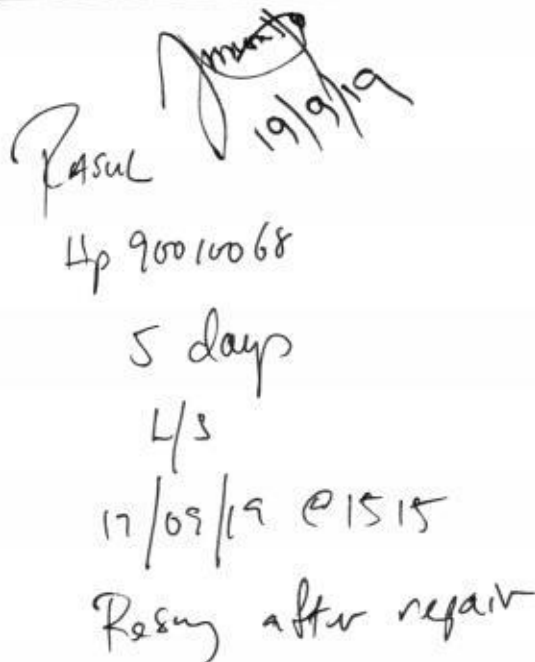 19/9/19
RASUL
Hp 90010068
5 days
L/S
17/09/19 @1515
Resury after repair